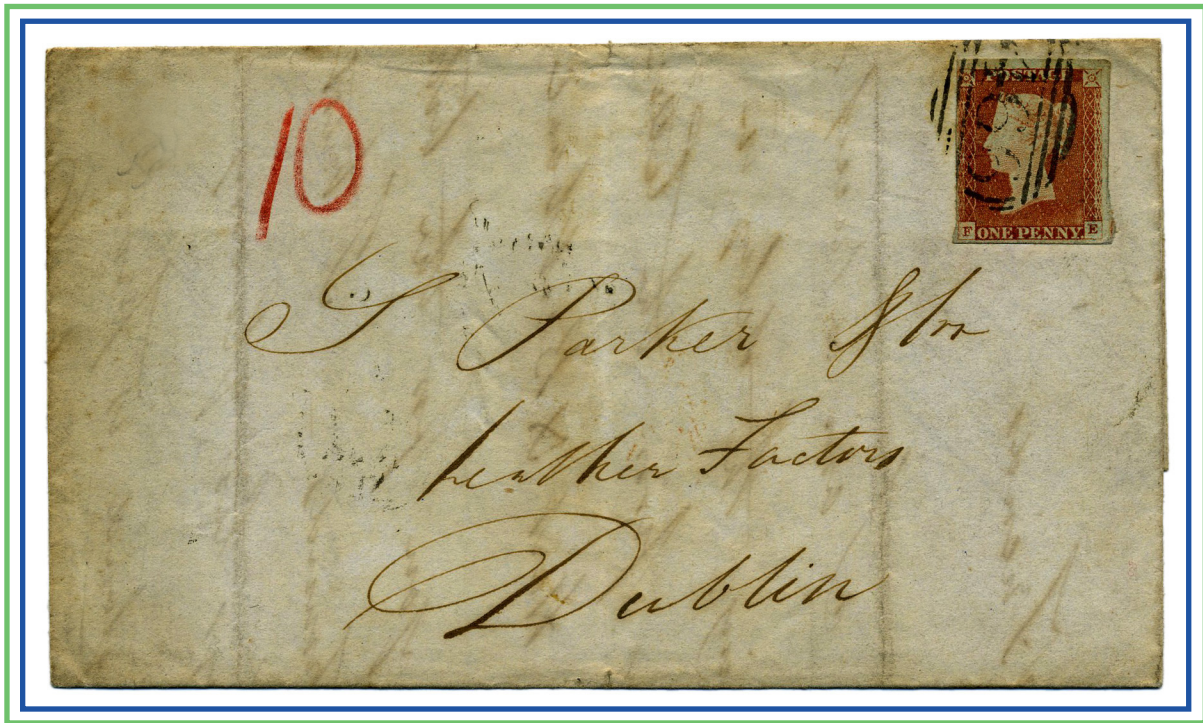 10
POSTAGE
F ONE PENNY E
S Parker & Son
Leather Factors
Dublin